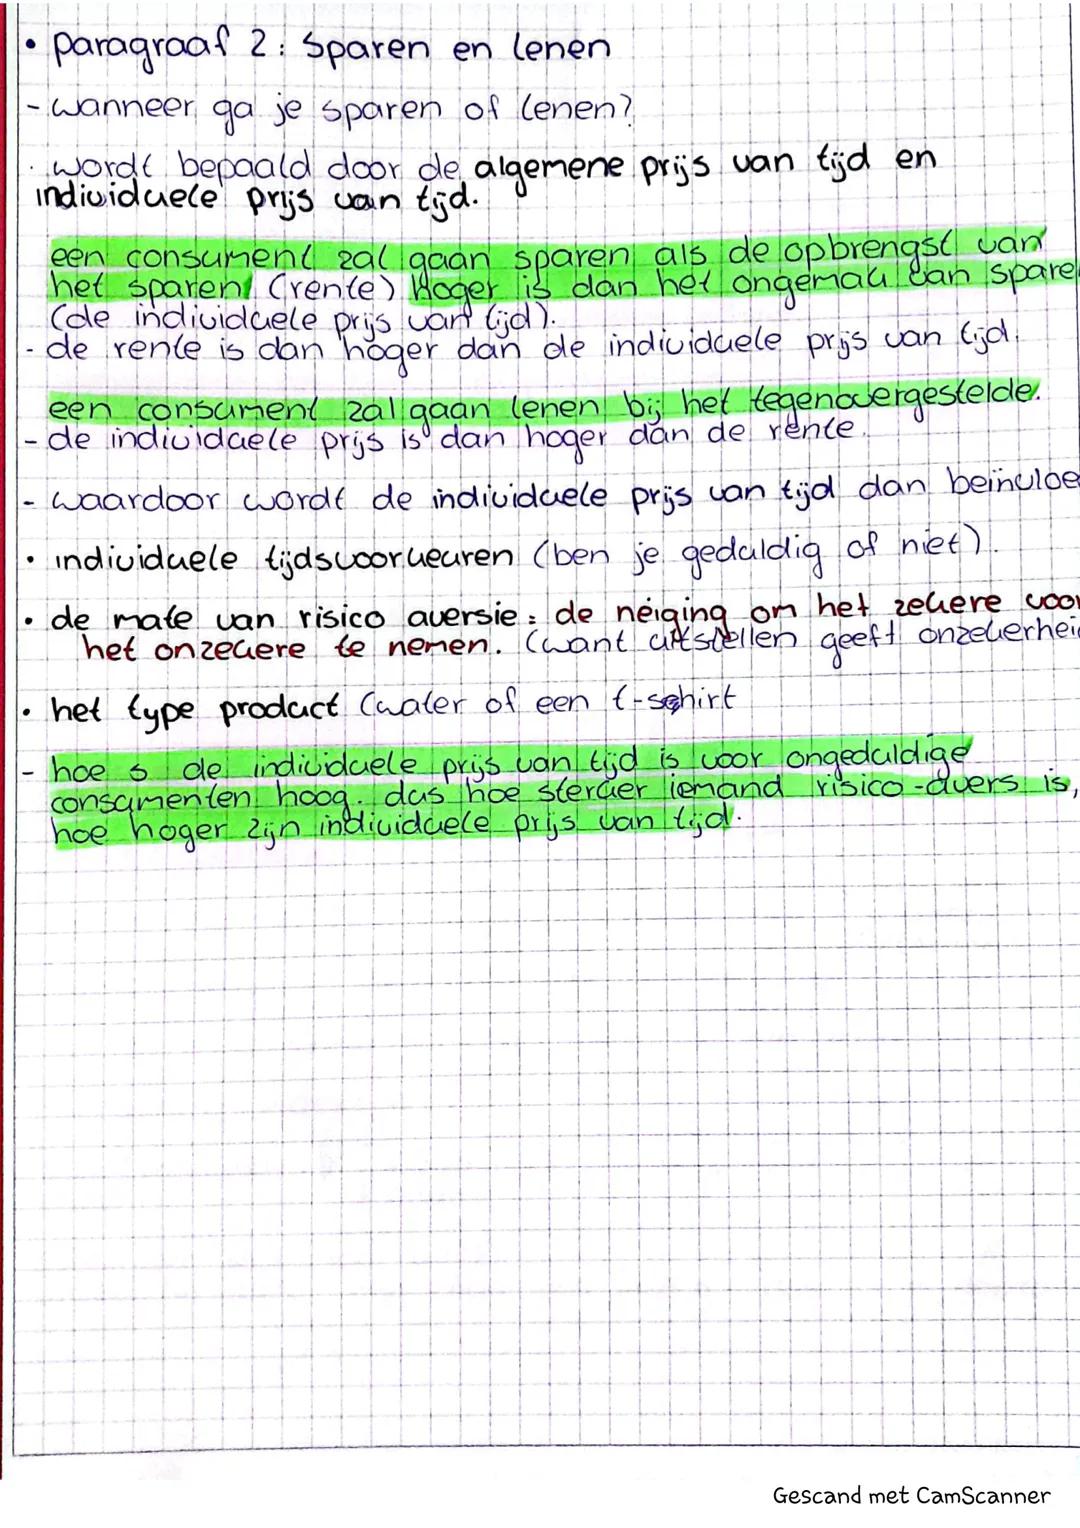 • paragraaf 2: Sparen en lenen
- wanneer ga je sparen of lenen?
· wordt bepaald door de algemene prijs van tijd en
individuele prijs van tijd.
een consument zal gaan sparen als de opbrengst van
het sparen (rente) Hoger is dan het ongemak van spare
(de individuele prijs van tijd).
- de rente is dan hoger dan de individuele prijs van tijd.
een consument zal gaan lenen bij het tegenovergestelde.
- de individuele prijs is dan hoger dan de rente.
- waardoor wordt de individuele prijs van tijd dan beïnvloe
• individuele tijdsvoorkeuren (ben je geduldig of niet).
• de mate van risico aversie: de neiging om het zekere voor
het onzekere te nemen. (want uitstellen geeft onzekerheid
• het type product (water of een t-schirt
- hoe s de individuele prijs van tijd is voor ongeduldige
consumenten hoog. dus hoe sterker iemand risico-avers is,
hoe hoger zijn individuele prijs van tijd.
Gescand met CamScanner